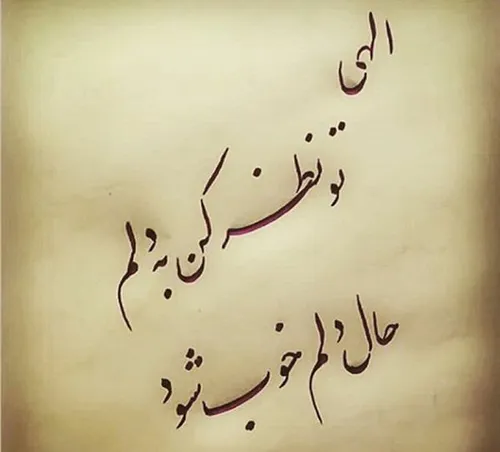 الهی
تو نظر کن به دلم
حال دلم خوب شود